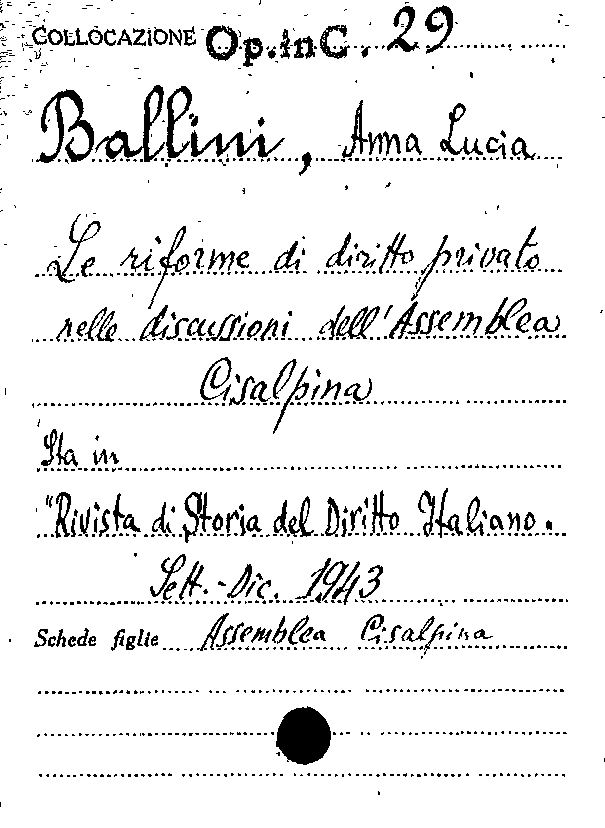 COLLOCAZIONE Op.inC. 29
Ballini, Anna Lucia
Le riforme di diritto privato
nelle discussioni dell'Assemblea
Cisalpina
Sta in
"Rivista di Storia del Diritto Italiano.
Sett.-Dic. 1943
Schede figlie Assemblea Cisalpina